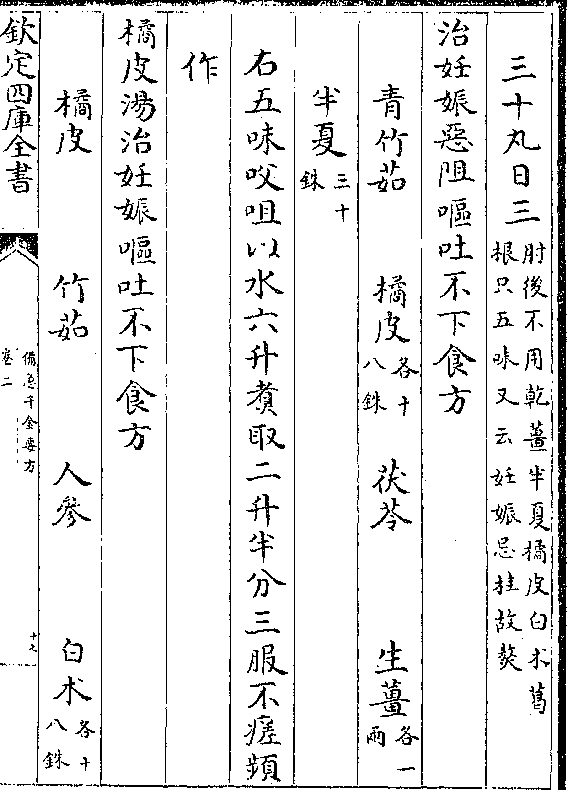 三十丸日三肘後不用乾薑半夏橘皮白朮葛根只五味又云妊娠忌桂故熬
治妊娠惡阻嘔吐不下食方
青竹茹 橘皮各十八銖 茯苓 生薑各一兩
半夏三十銖
右五味㕮咀以水六升煑取二升半分三服不瘥頻
作
橘皮湯治妊娠嘔吐不下食方
橘皮 竹茹 人參 白朮各十八銖
欽定四庫全書
備急千金要方
卷二
十九